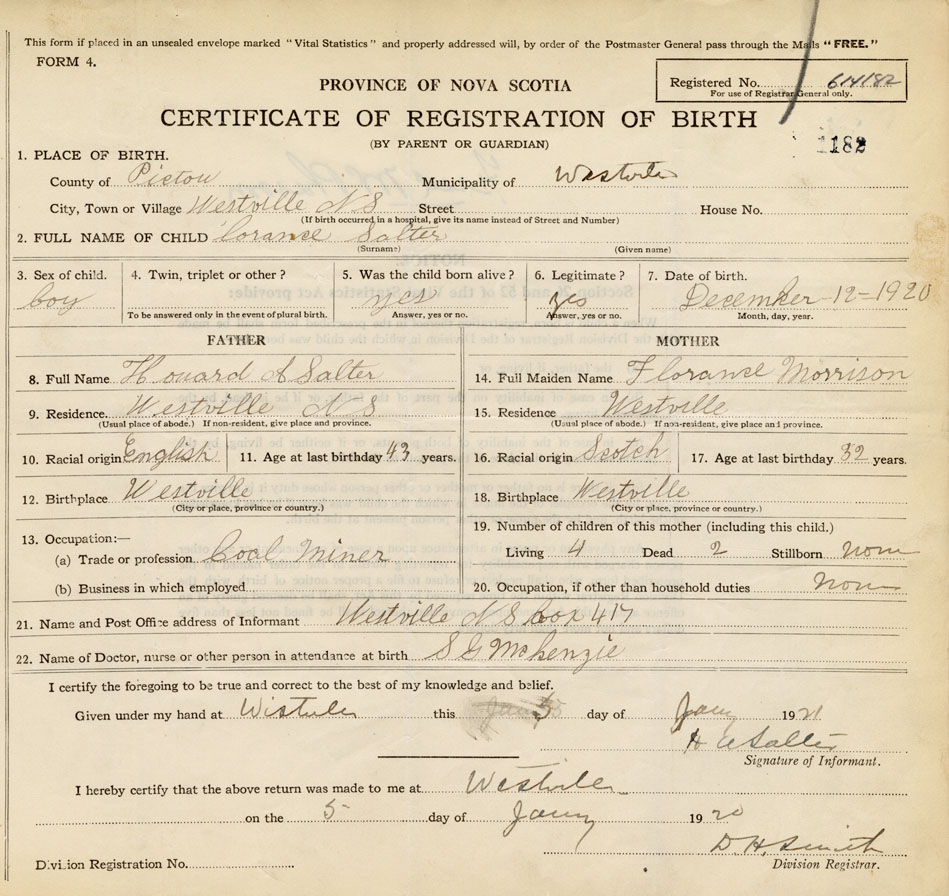 This form if placed in an unsealed envelope marked "Vital Statistics" and properly addressed will, by order of the Postmaster General pass through the Mails "FREE."
FORM 4.
PROVINCE OF NOVA SCOTIA
Registered No. 614182
For use of Registrar General only.
CERTIFICATE OF REGISTRATION OF BIRTH
(BY PARENT OR GUARDIAN)
1182
1. PLACE OF BIRTH.
County of Pictou Municipality of Westville
City, Town or Village Westville N S Street House No.
(If birth occurred in a hospital, give its name instead of Street and Number)
2. FULL NAME OF CHILD Lorance Salter
(Surname) (Given name)
3. Sex of child. 4. Twin, triplet or other? 5. Was the child born alive? 6. Legitimate? 7. Date of birth.
boy yes yes December-12=1920
To be answered only in the event of plural birth. Answer, yes or no. Answer, yes or no. Month, day, year.
FATHER MOTHER
8. Full Name Howard A Salter 14. Full Maiden Name Florance Morrison
9. Residence. Westville N S 15. Residence Westville
(Usual place of abode.) If non-resident, give place and province. (Usual place of abode.) If non-resident, give place and province.
10. Racial origin English 11. Age at last birthday 43 years. 16. Racial origin Scotch 17. Age at last birthday 32 years.
12. Birthplace Westville 18. Birthplace Westville
(City or place, province or country.) (City or place, province or country.)
13. Occupation:— 19. Number of children of this mother (including this child.)
(a) Trade or profession Coal Miner Living 4 Dead 2 Stillborn non
(b) Business in which employed 20. Occupation, if other than household duties Non
21. Name and Post Office address of Informant Westville N S box 417
22. Name of Doctor, nurse or other person in attendance at birth S G McKenzie
I certify the foregoing to be true and correct to the best of my knowledge and belief.
Given under my hand at Westville this 5 day of Jany 1921
H A Salter
Signature of Informant.
I hereby certify that the above return was made to me at Westville
on the 5 day of Jany 1920
D. H. Smith
Division Registrar No. Division Registrar.